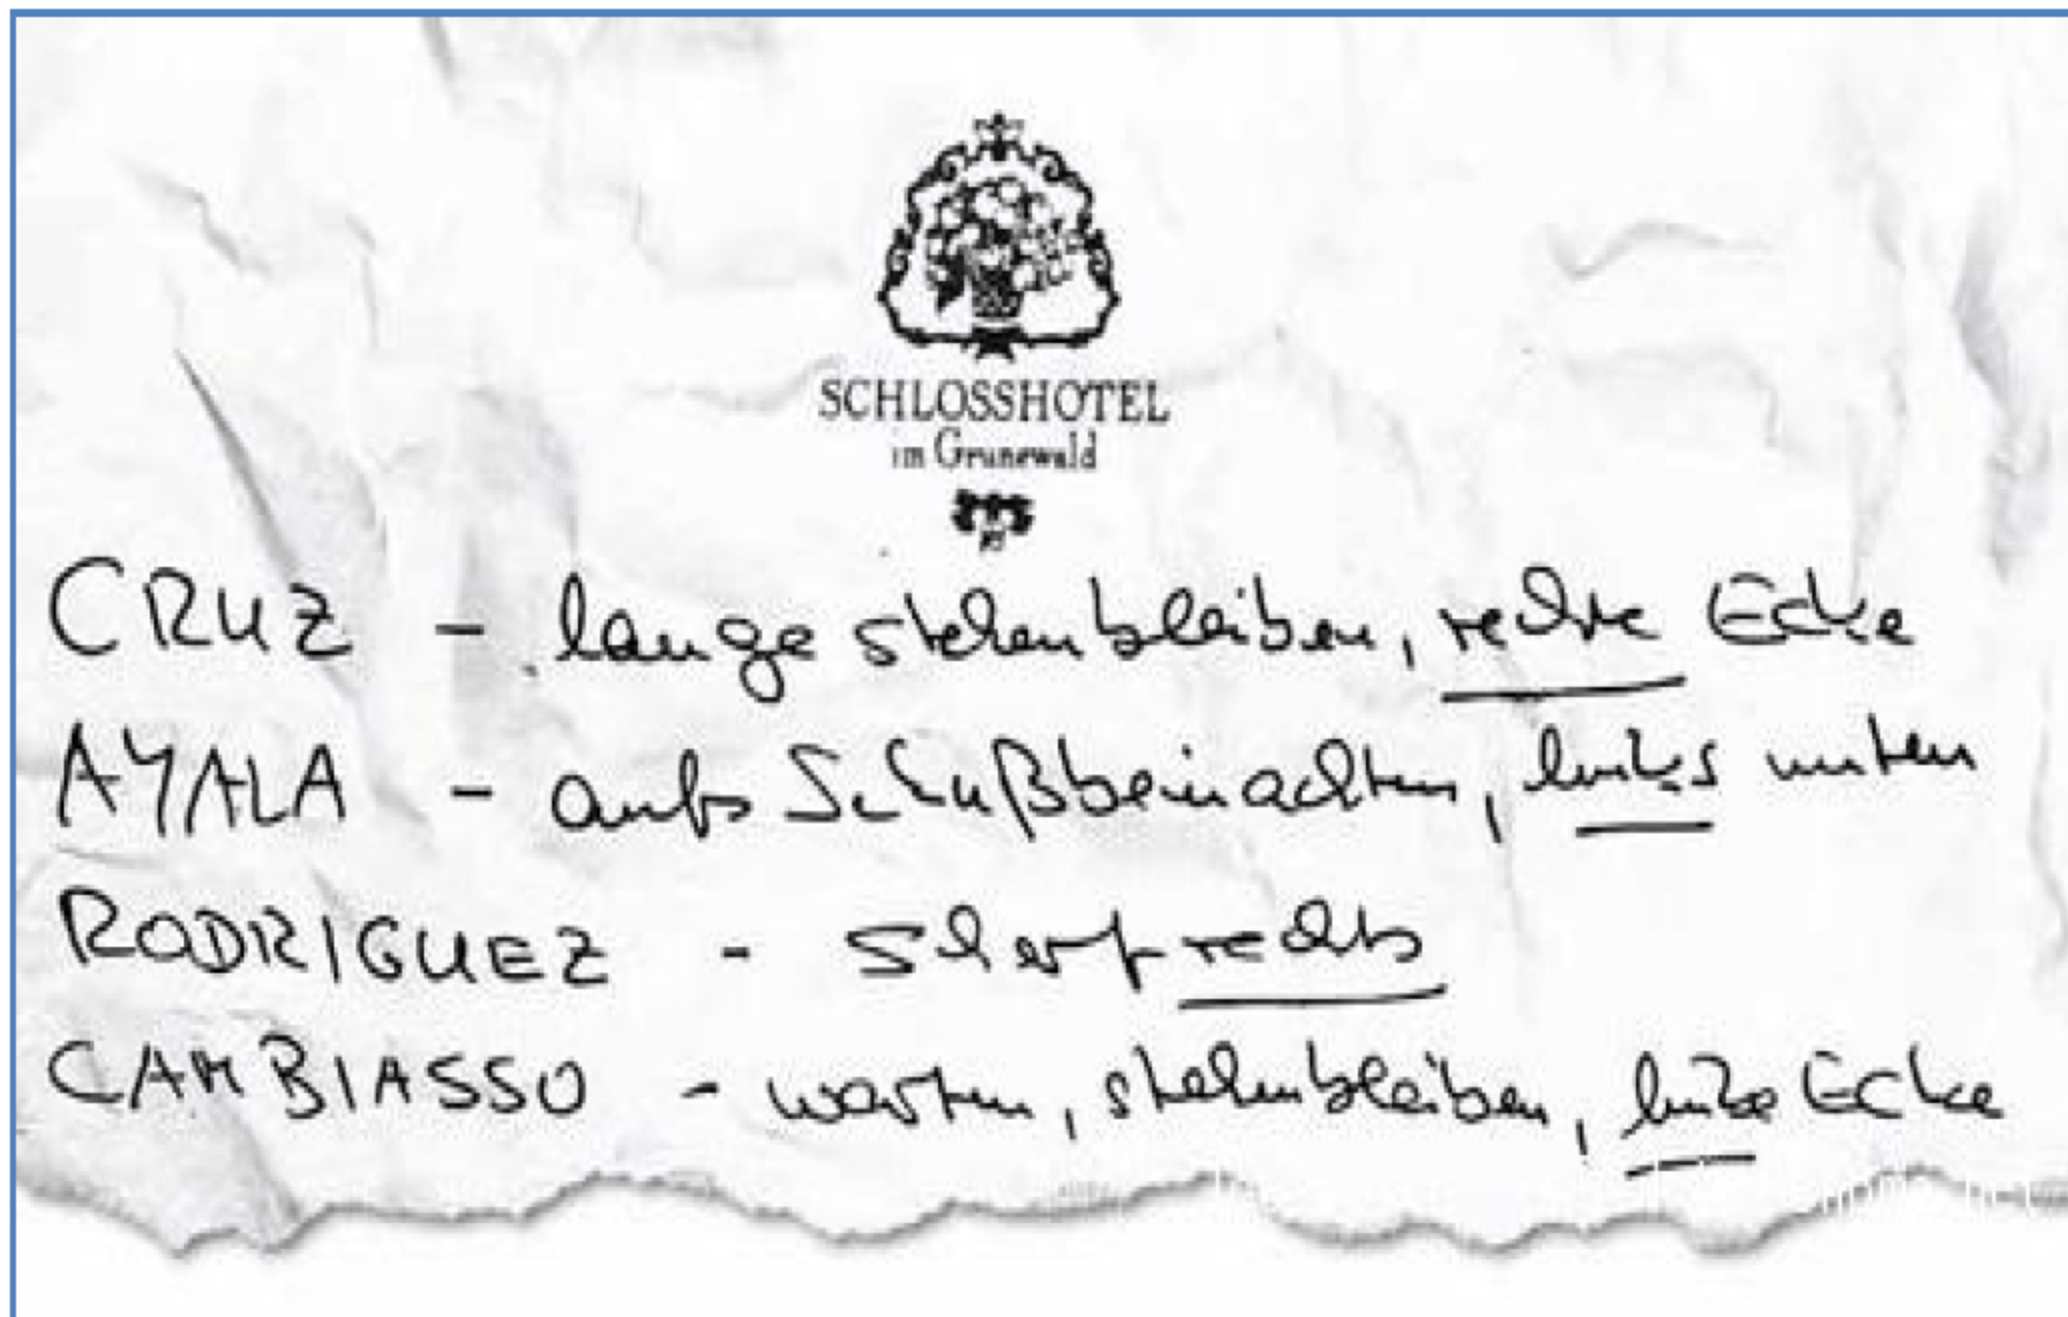 SCHLOSSHOTEL
im Grunewald
CRUZ - lange stehenbleiben, rechte Ecke
AYALA - aufs Schußbein achten, links unten
RODRIGUEZ - scharf rechts
CAMBIASSO - warten, stehenbleiben, linke Ecke